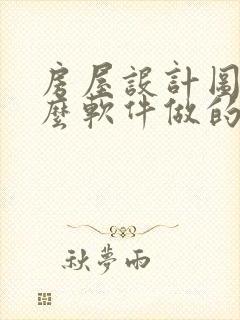 房屋設計圖
麼軟件做的
秋夢雨